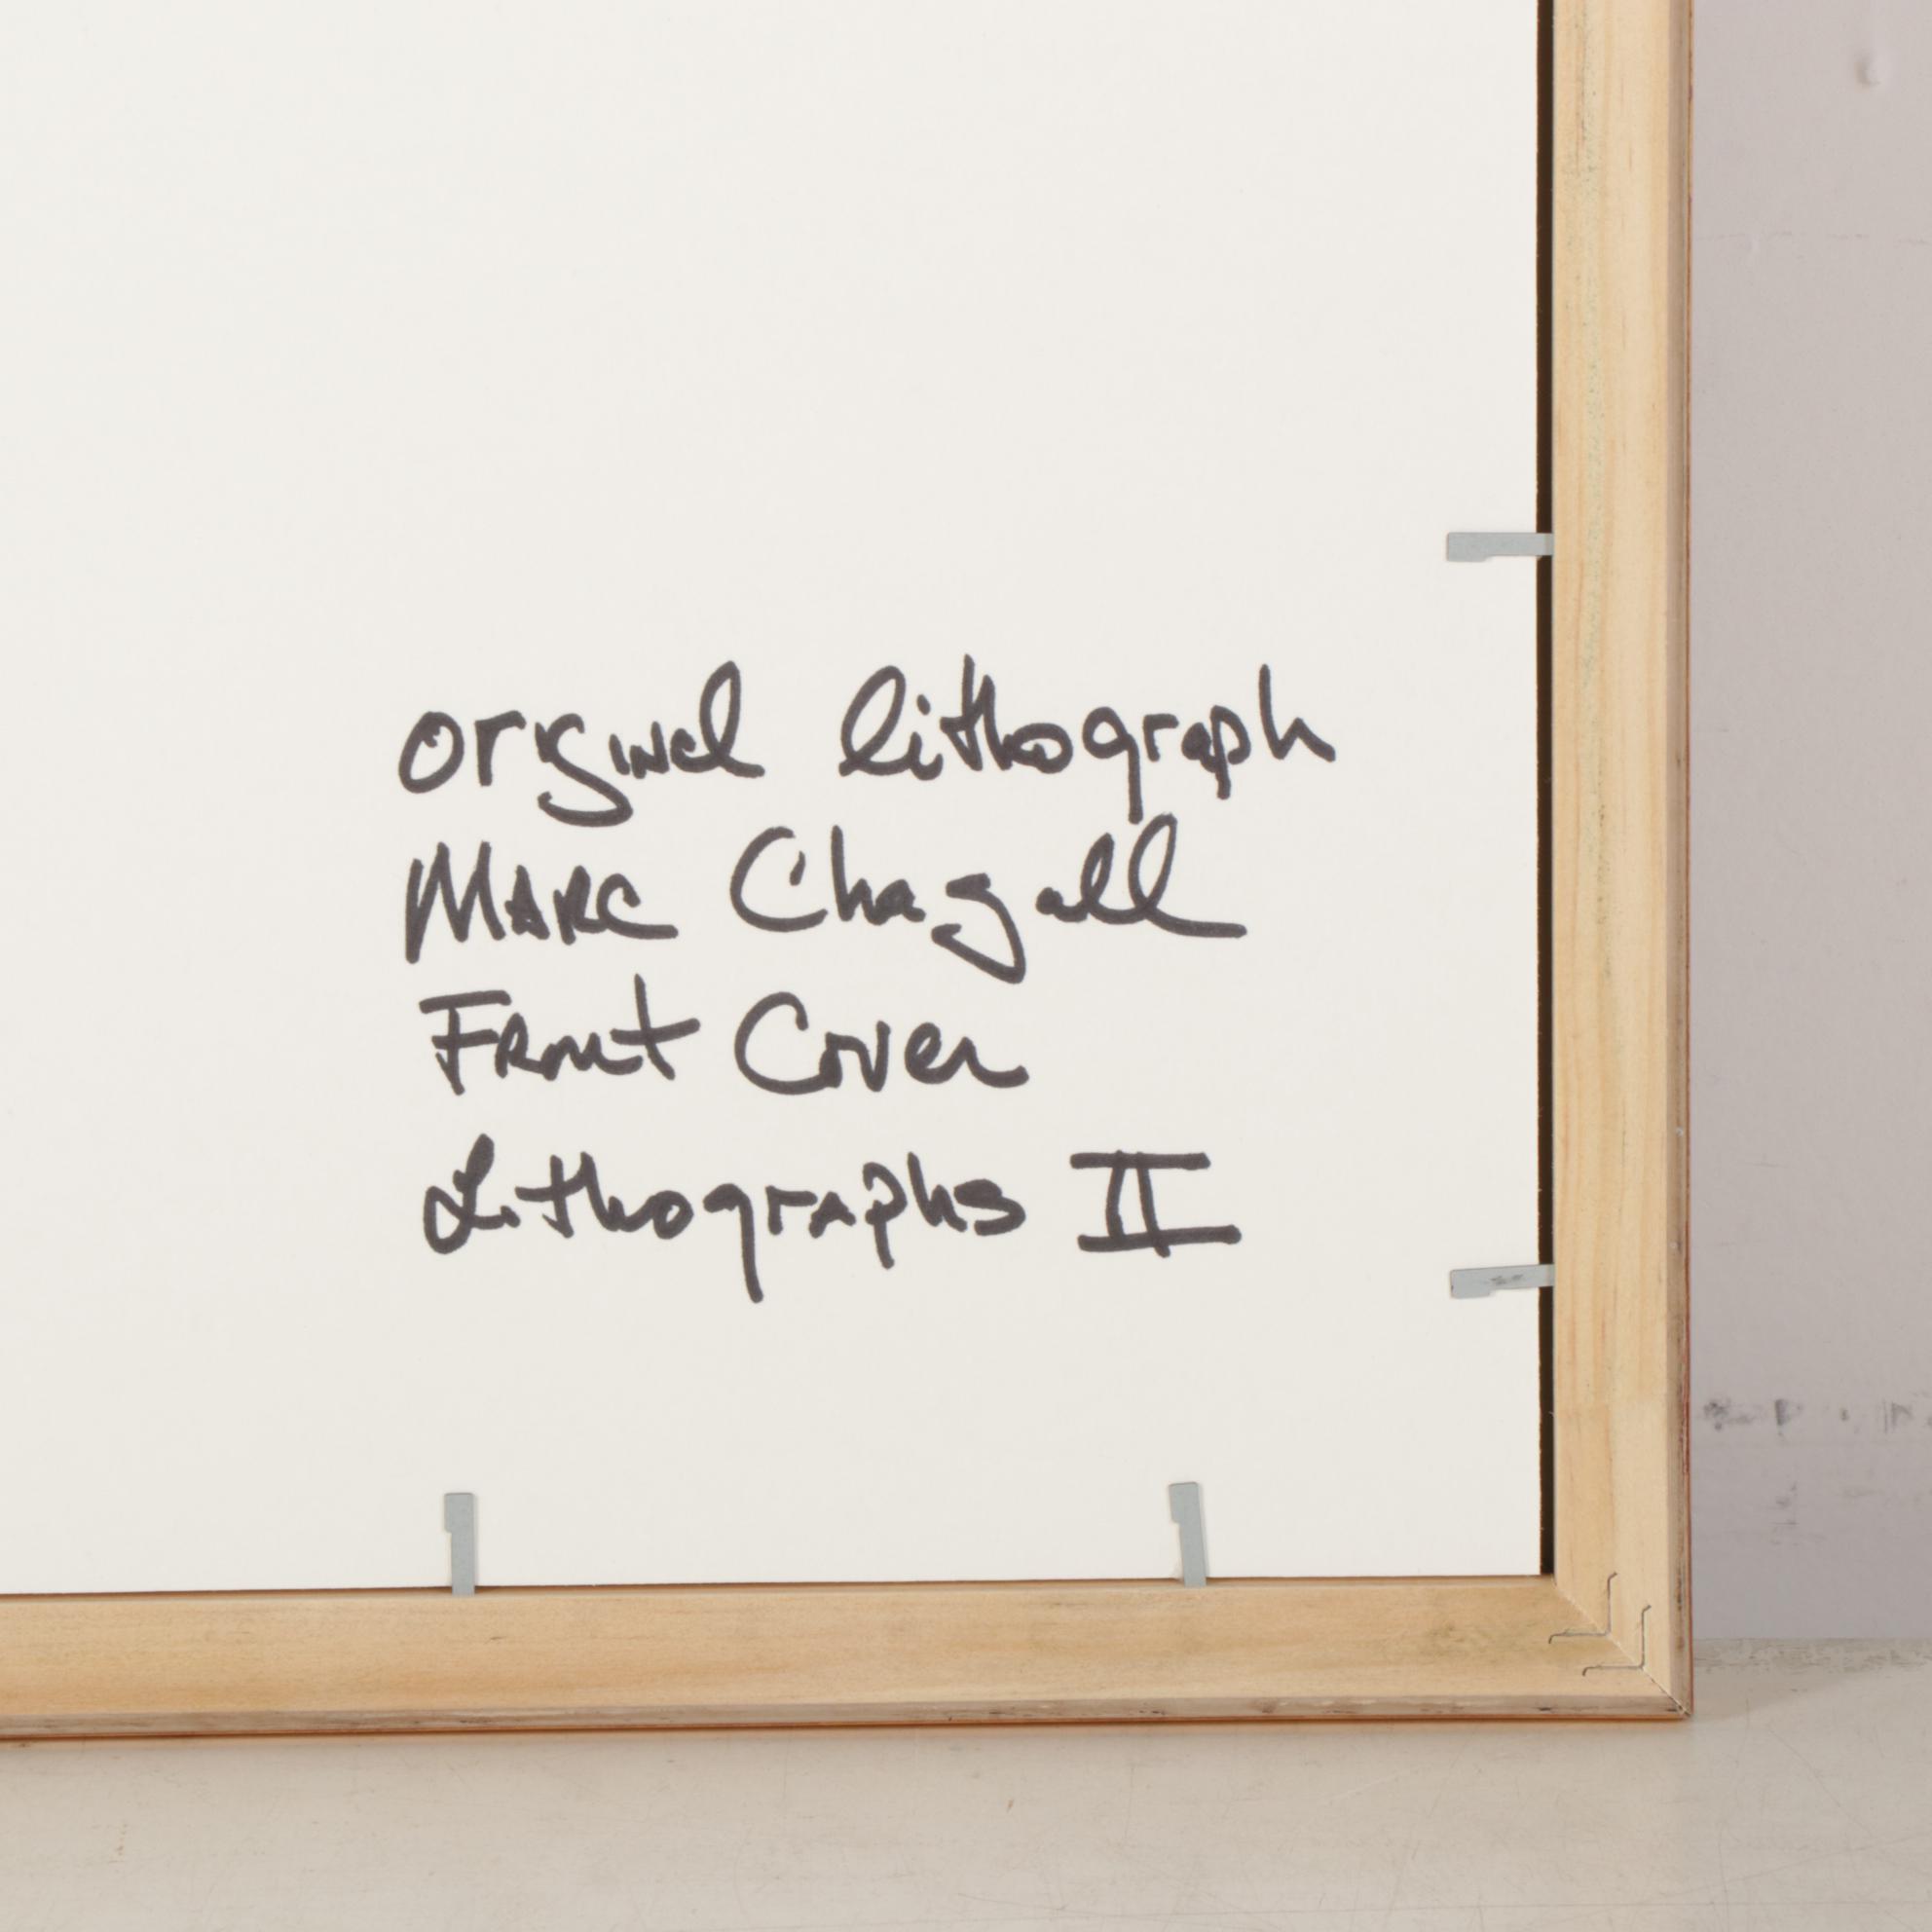 original lithograph
MARC Chagall
Front Cover
Lithographs II